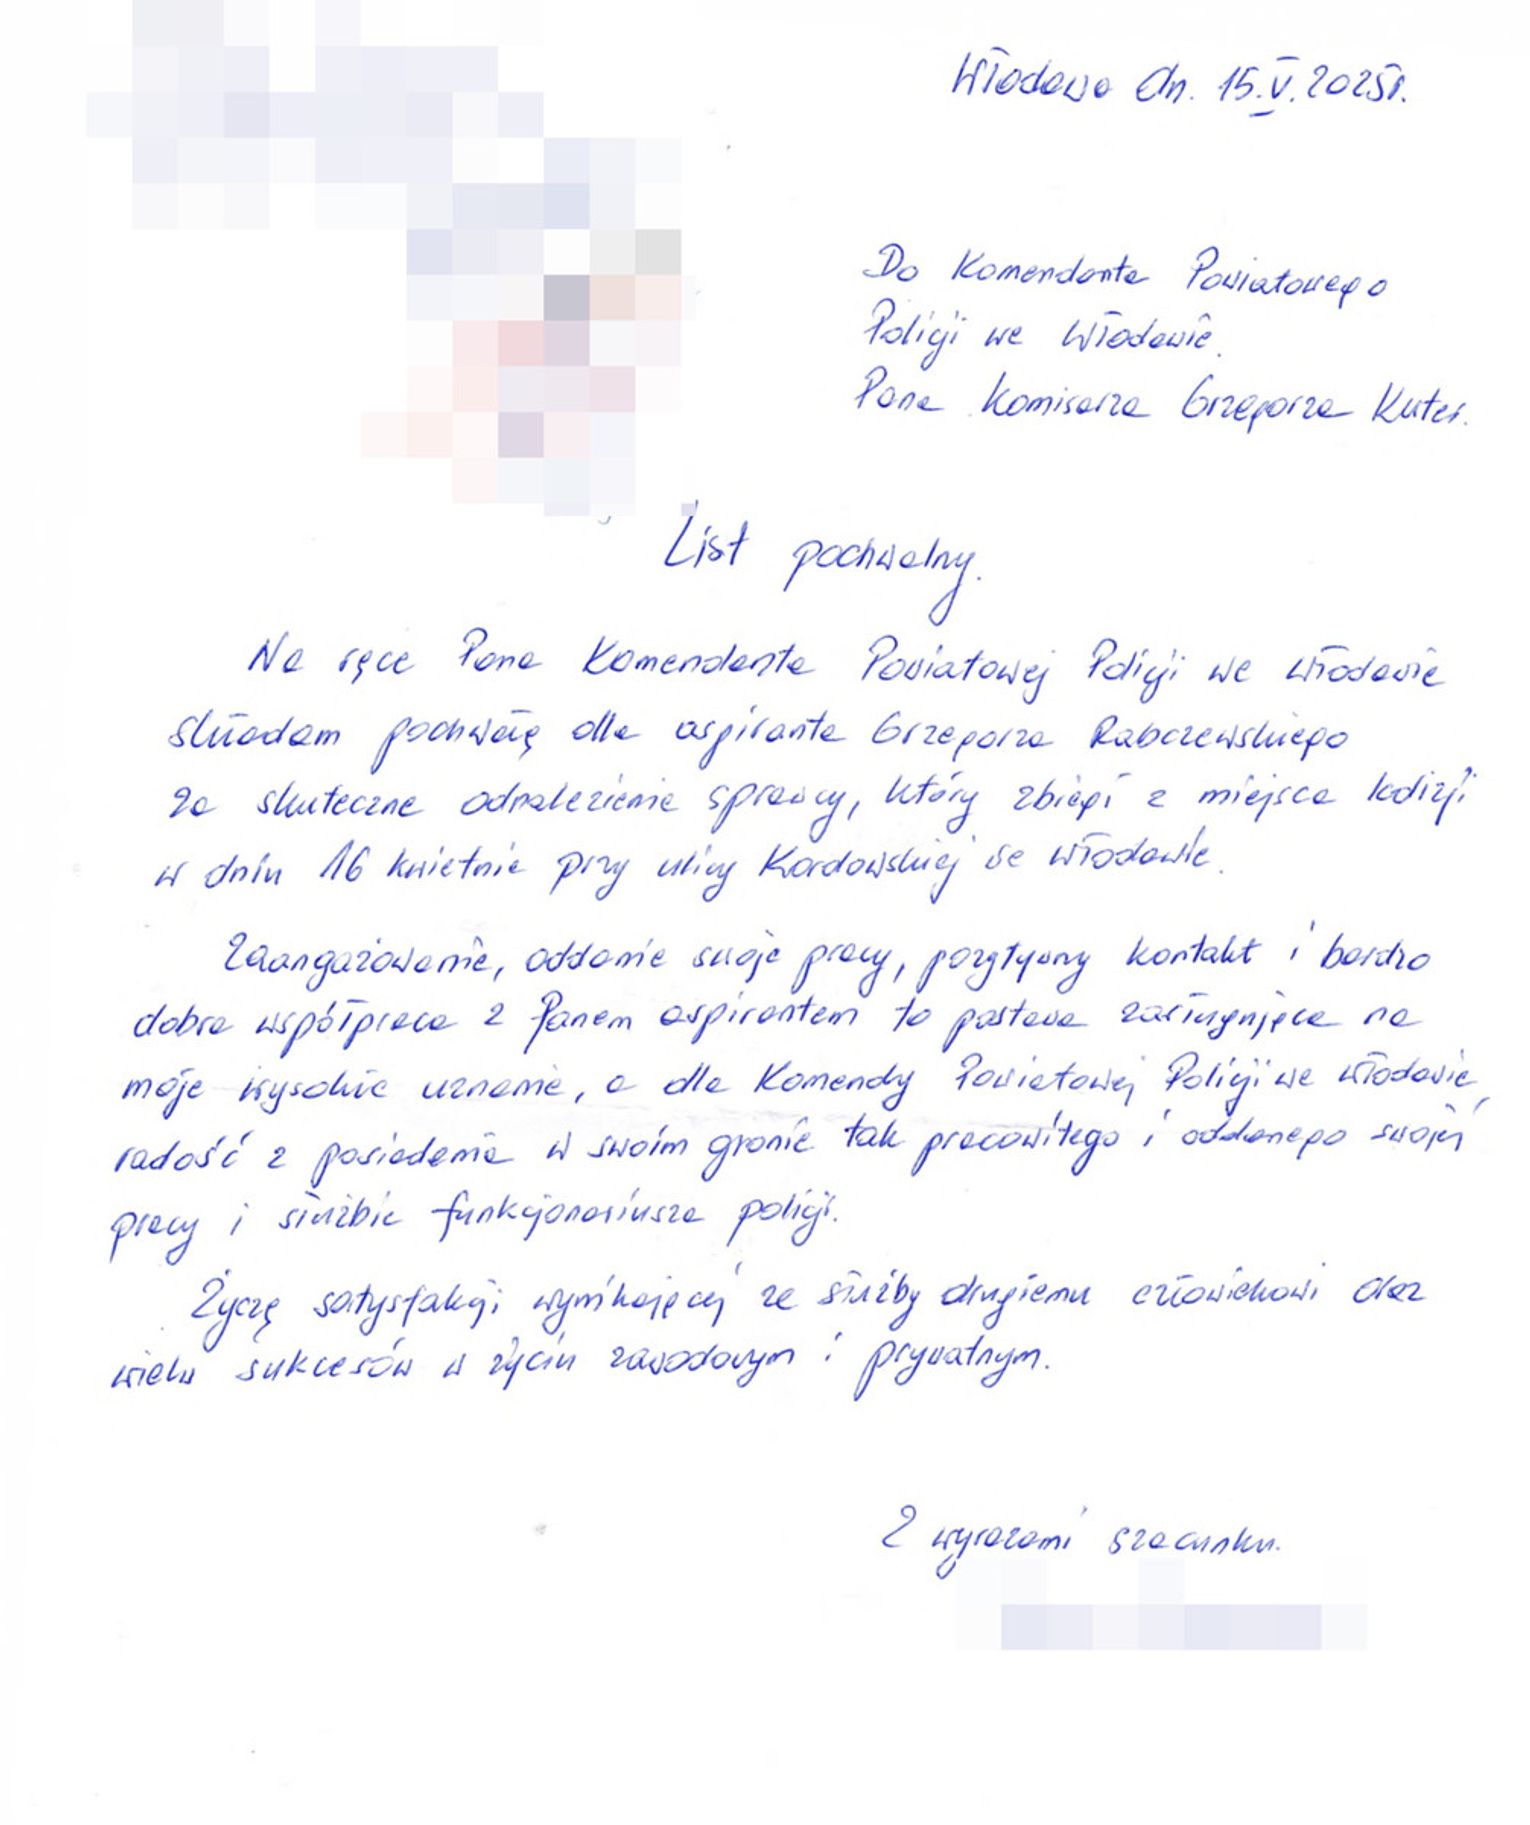 Włodawa dn. 15.V.2025r.
Do Komendanta Powiatowego
Policji we Włodawie.
Pana Komisarza Grzegorza
List pochwalny.
Na ręce Pana Komendanta Powiatowej Policji we Włodawie
składam pochwałę dla aspiranta Grzegorza Rabczewskiego
za skuteczne odnalezienie sprawcy, który zbiegł z miejsca kolizji
w dniu 16 kwietnia przy ulicy we Włodawie.
Zaangażowanie, oddanie swoje pracy, pozytywny kontakt i bardzo
dobra współpraca z Panem aspirantem to postawa zasługująca na
moje wysokie uznanie, a dla Komendy Powiatowej Policji we Włodawie,
radość z posiadania w swoim gronie tak pracowitego i oddanego swojej
pracy i służbie funkcjonariusza policji.
Życzę satysfakcji wynikającej ze służby drugiemu człowiekowi oraz
wielu sukcesów w życiu zawodowym i prywatnym.
Z wyrazami szacunku.